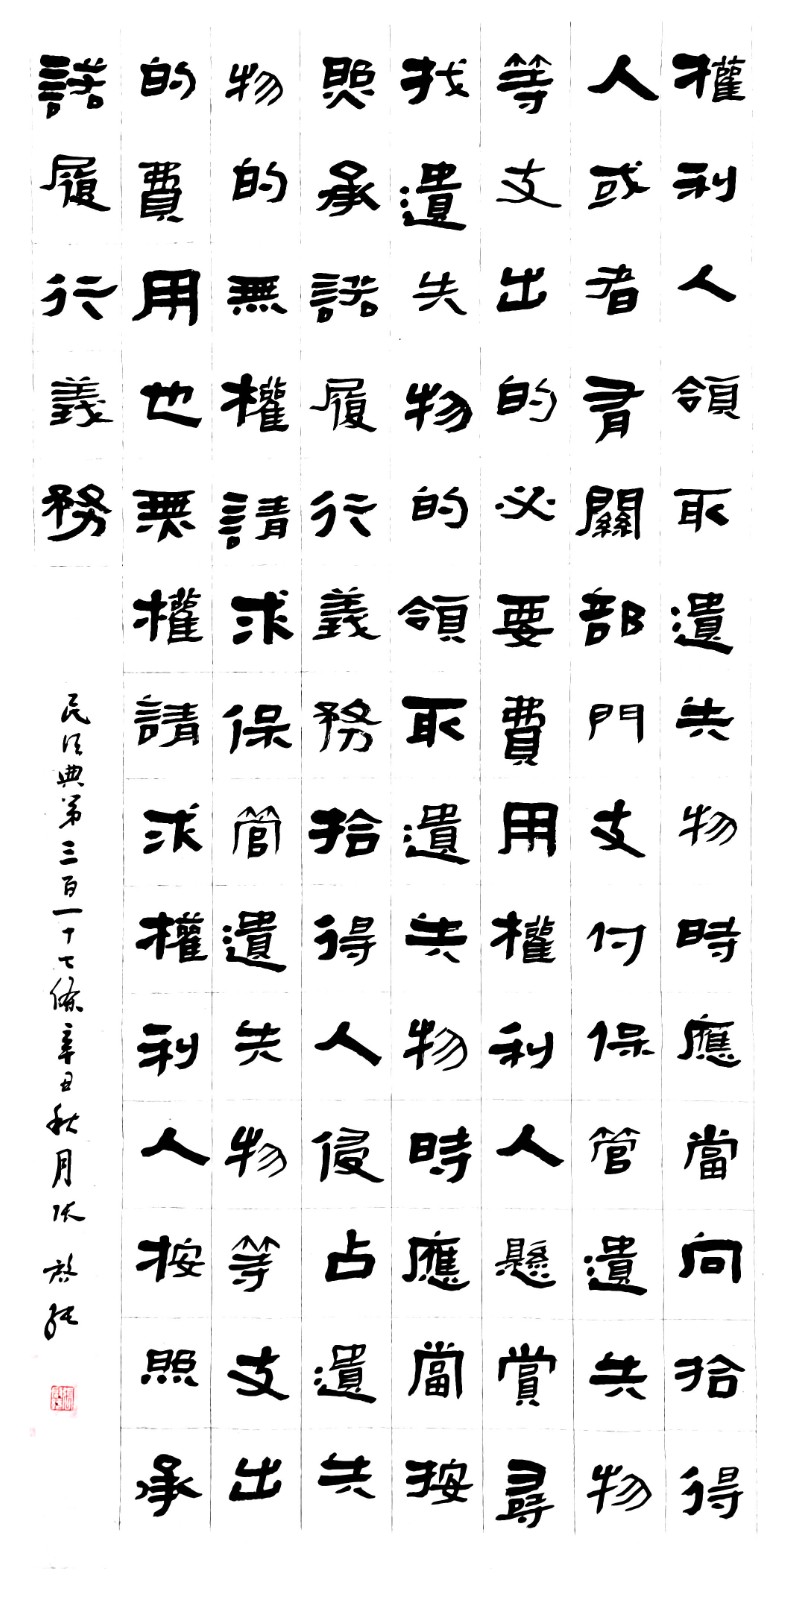 權利人領取遺失物時應當向拾得
人或者有關部門支付保管遺失物
等支出的必要費用權利人懸賞尋
找遺失物的領取遺失物時應當按
照承諾履行義務拾得人侵占遺失
物的無權請求保管遺失物等支出
的費用也無權請求權利人按照承
諾履行義務
民法典第三百一十七條辛丑秋月